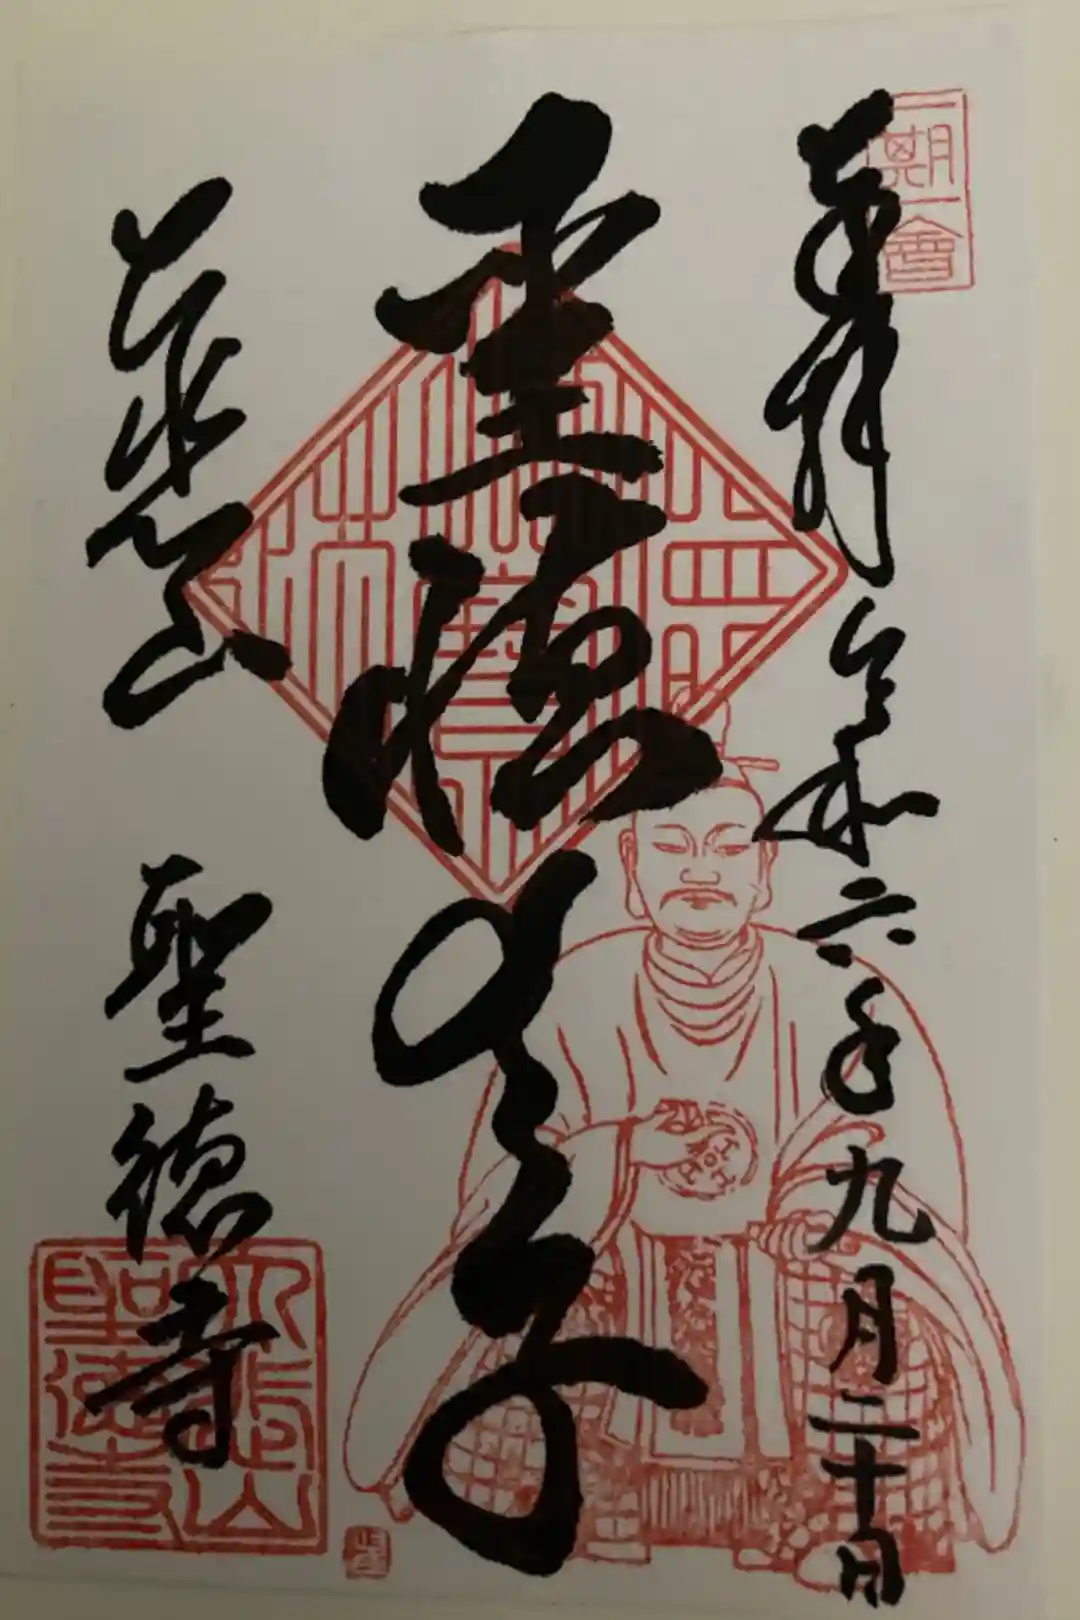 一期一會
奉拝 令和六年九月二十日
聖徳太子
山 聖徳寺
山
聖徳寺